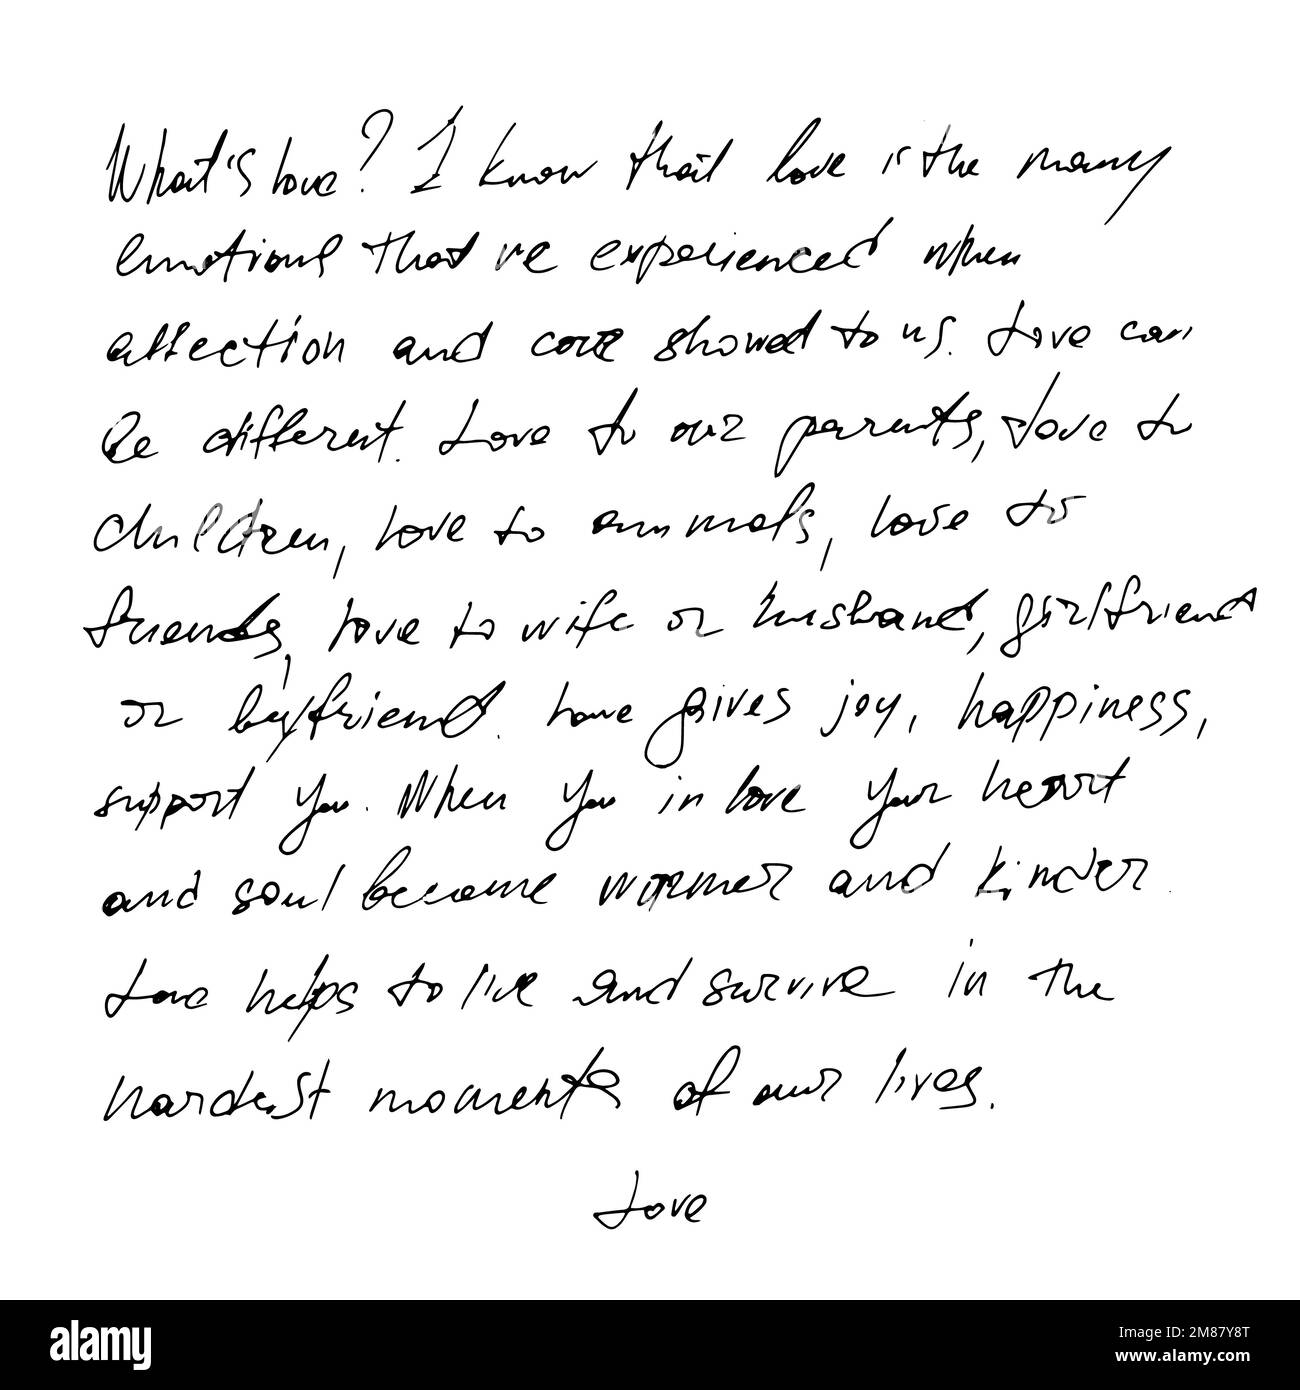 What's love? I know that love is the many
emotions that ve experienced when
affection and care showed to us. Love can
be different. Love to our parents, love to
children, love to animals, love to
friends, love to wife or husband, girlfriend
or boyfriend. Love gives joy, happiness,
support you. When you in love your heart
and soul become warmer and kinder.
Love helps to live and survive in the
hardest moments of our lives.
Love
alamy
Image ID: 2M87Y8T
www.alamy.com